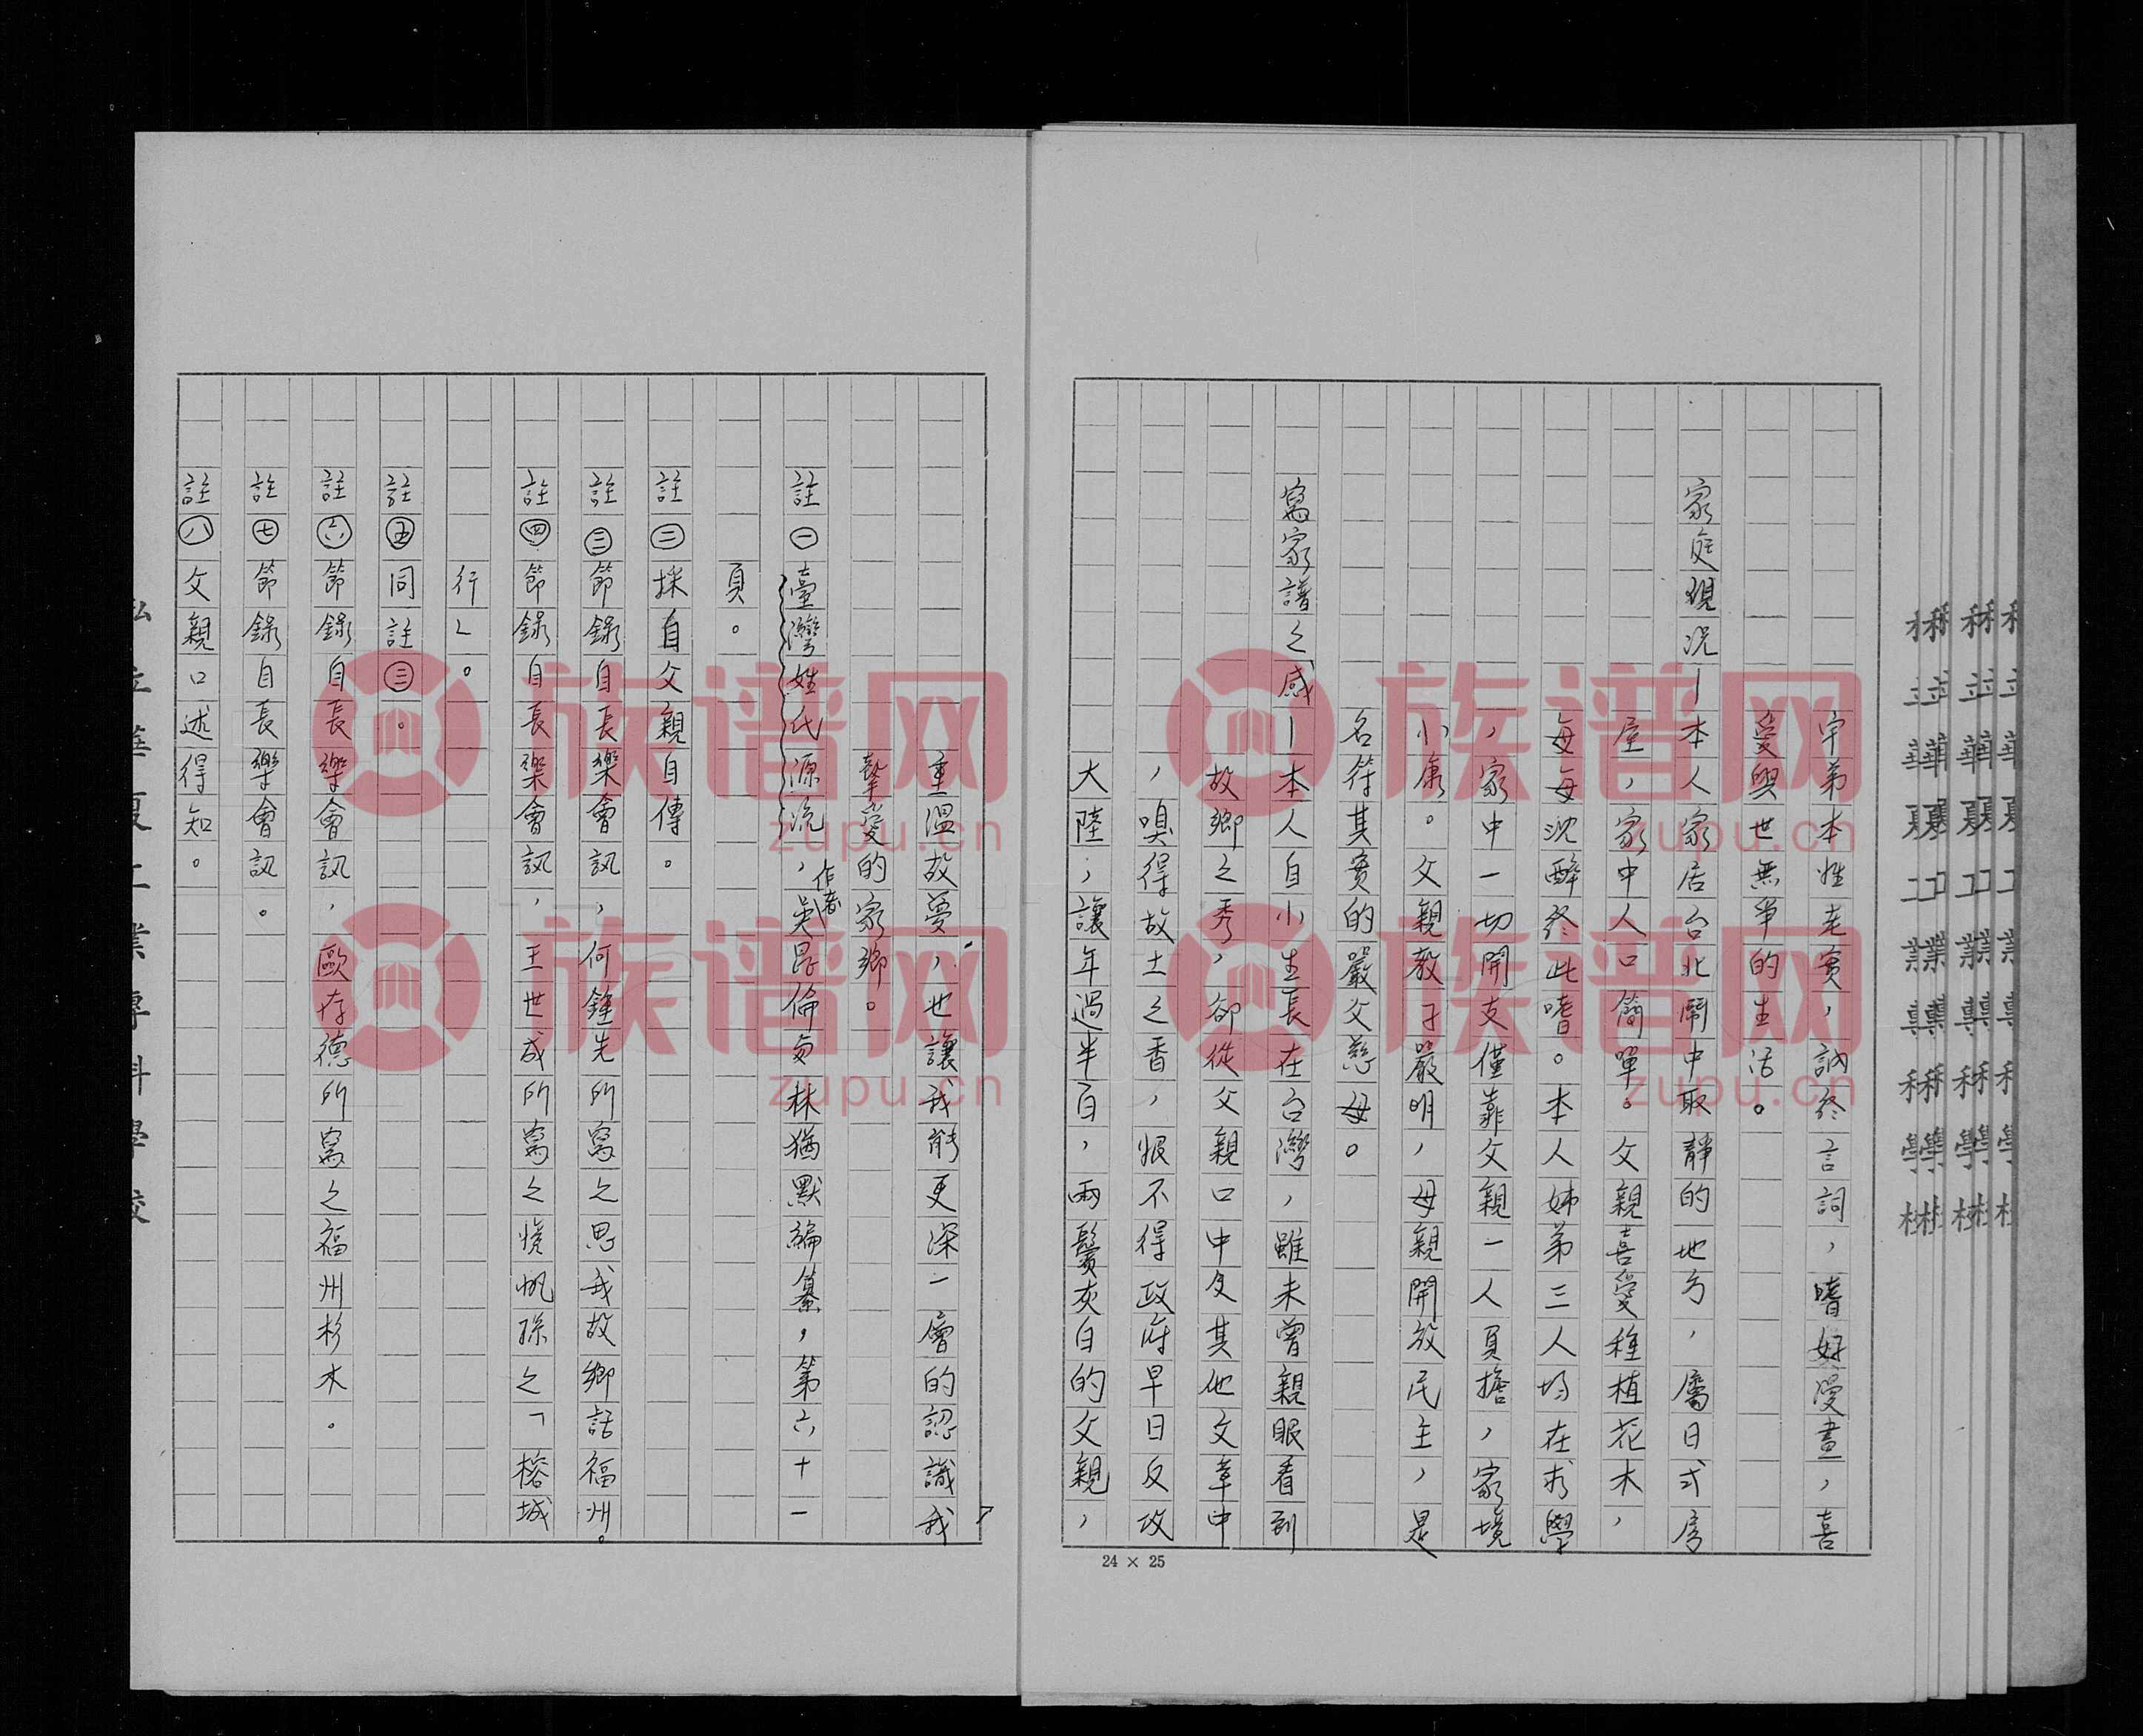 宇弟本性老實，訥於言詞，嗜好漫畫，喜
愛與世無爭的生活。
家庭現況—本人家居台北鬧中取靜的地方，屬日式房
屋，家中人口簡單。父親喜愛種植花木，
每每沈醉於此嗜。本人姊弟三人均在求學
，家中一切開支僅靠父親一人負擔，家境
小康。父親教子嚴明，母親開放民主，是
名符其實的嚴父慈母。
寫家譜之感—本人自小生長在台灣，雖未曾親眼看到
故鄉之秀，卻從父親口中及其他文章中
，嗅得故土之香，恨不得政府早日反攻
大陸，讓年過半百，兩鬢灰白的父親，
24 × 25
重溫故夢，也讓我能更深一層的認識我
摯愛的家鄉。
註㊀臺灣姓氏源流，作者吳昆倫與林猶默編纂，第六十一
頁。
註㊁採自父親自傳。
註㊂節錄自長樂會訊，何鍾先所寫之思我故鄉話福州。
註㊃節錄自長樂會訊，王世成所寫之憶帆孫之「榕城
行」。
註㊄同註㊂。
註㊅節錄自長樂會訊，歐存德所寫之福州杉木。
註㊆節錄自長樂會訊。
註㊇父親口述得知。
私立華夏工業專科學校
族谱网
zupu.cn
族谱网
zupu.cn
族谱网
zupu.cn
族谱网
zupu.cn